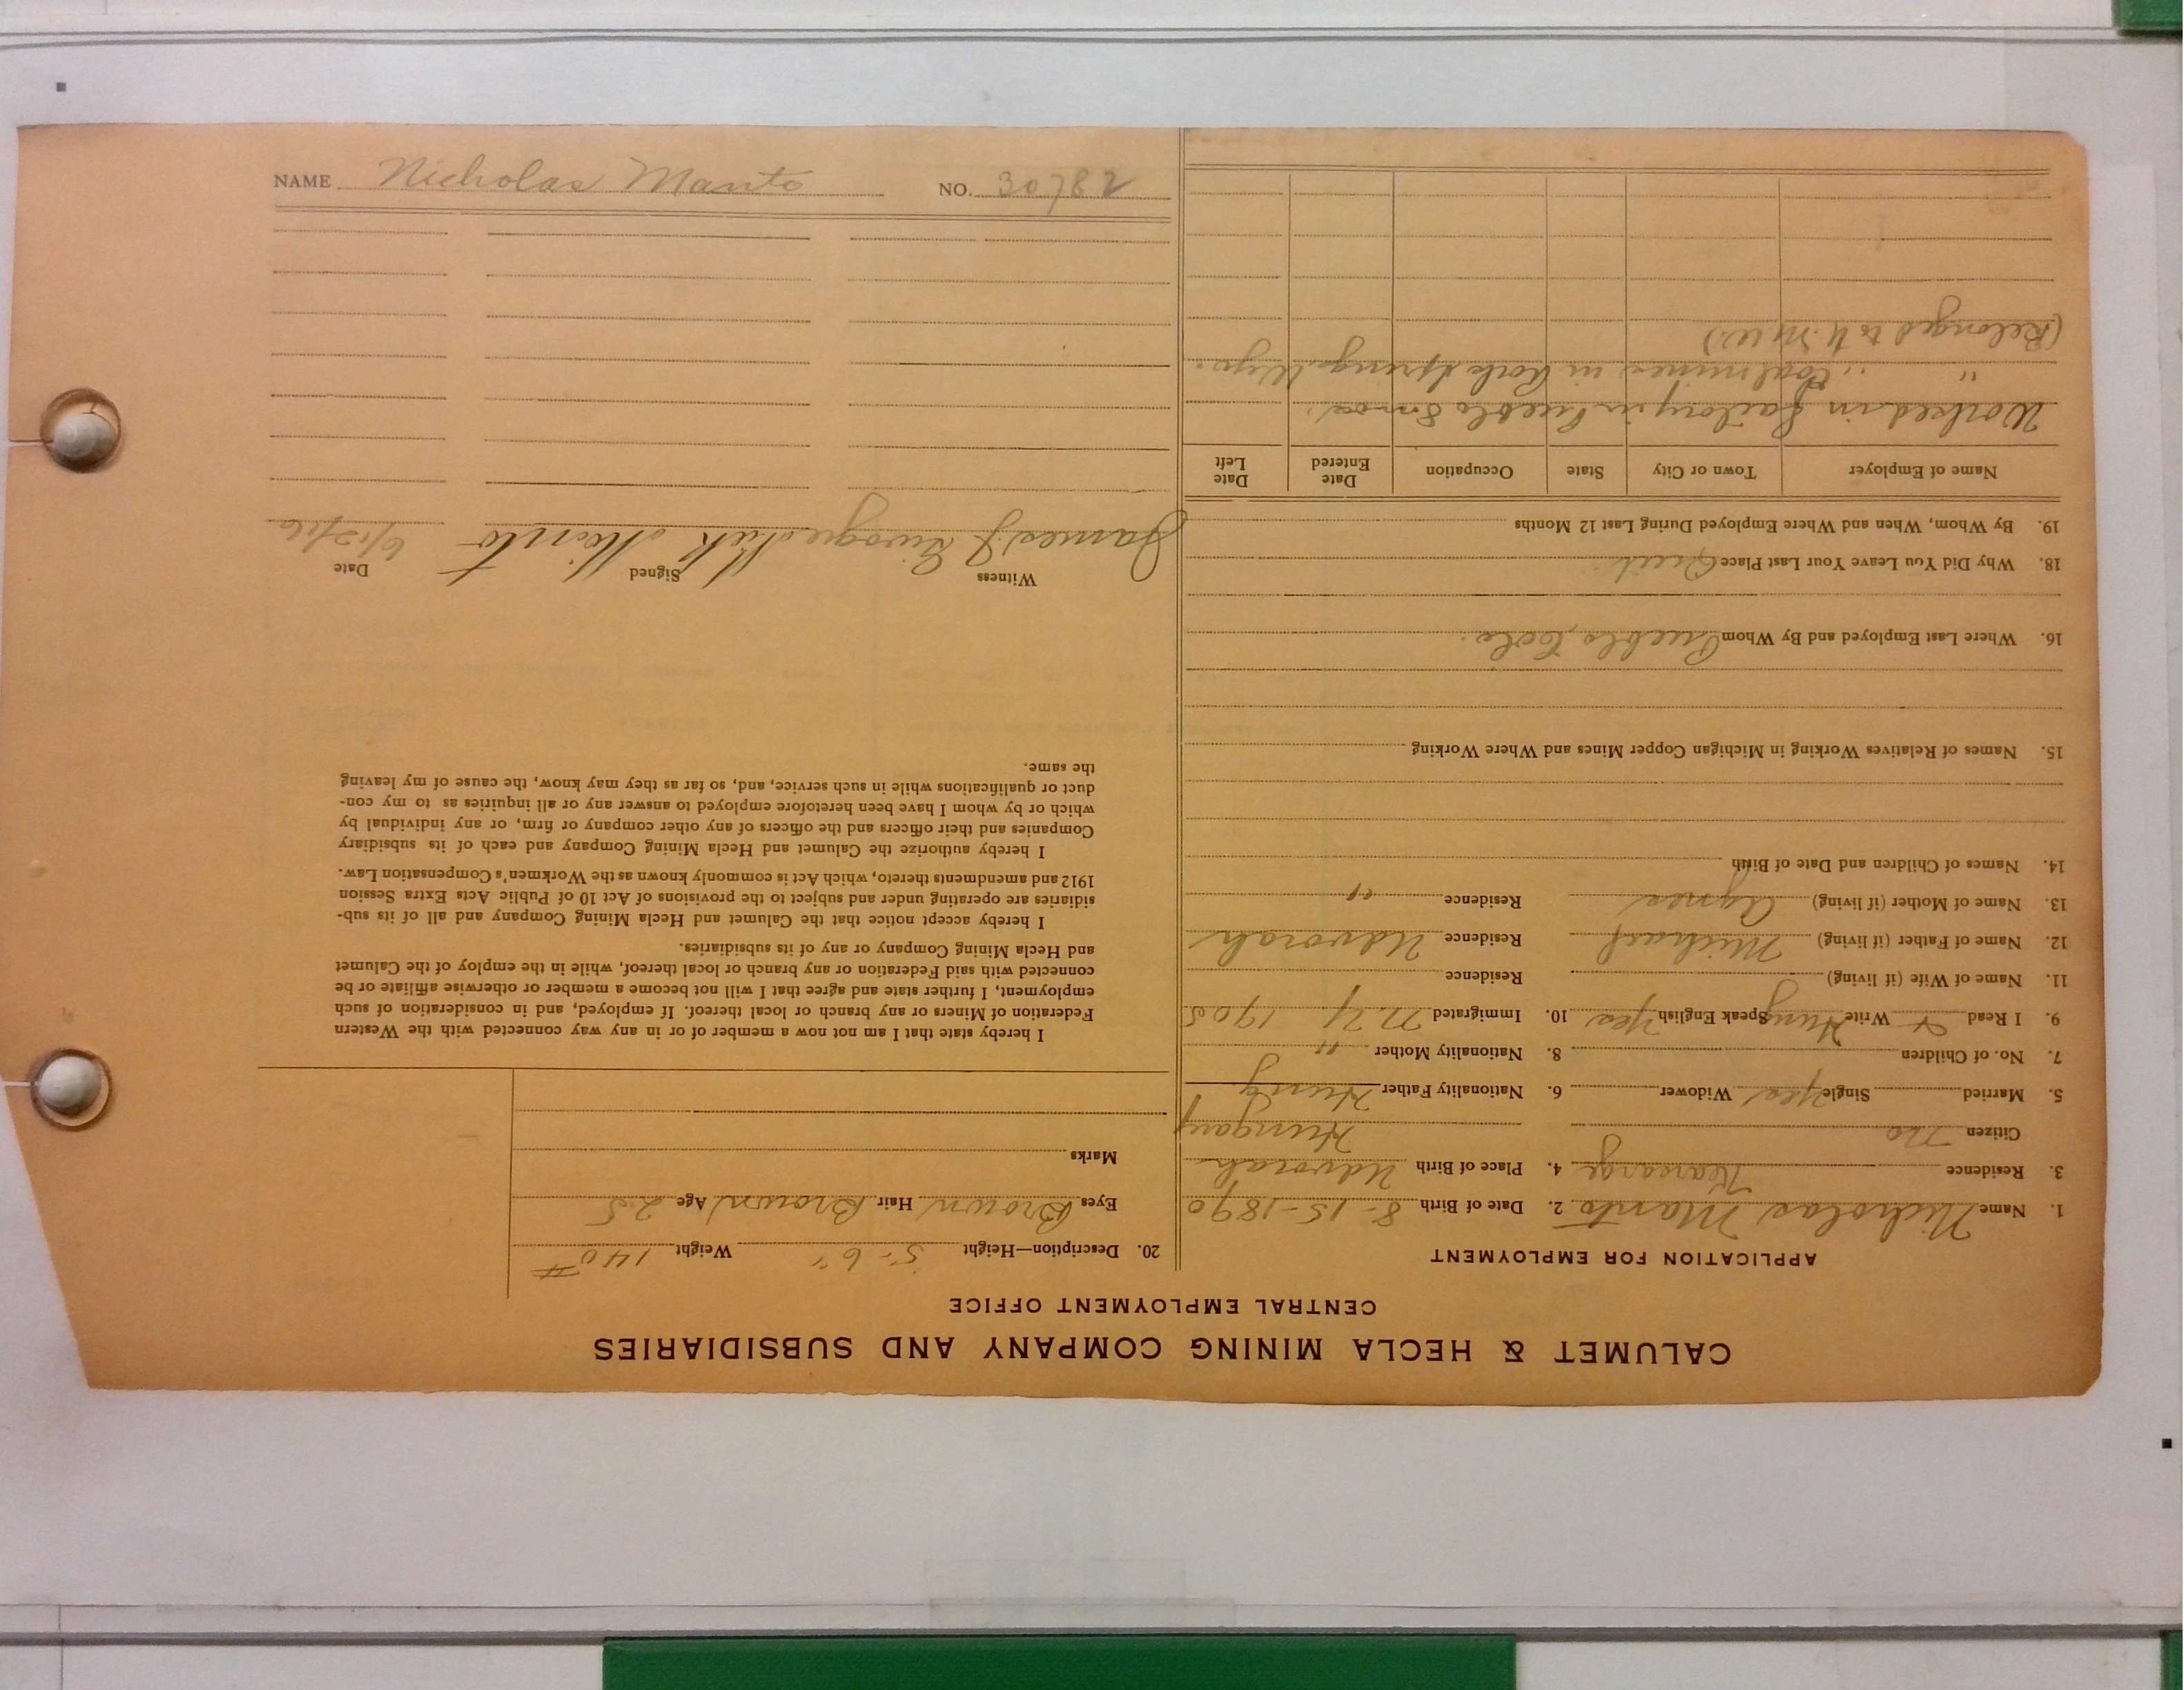 CALUMET & HECLA MINING COMPANY AND SUBSIDIARIES
CENTRAL EMPLOYMENT OFFICE
APPLICATION FOR EMPLOYMENT
1. Name Nicholas Manto 2. Date of Birth 8-15-1890
3. Residence Kearsarge 4. Place of Birth Udvorah
Citizen No Hungary
5. Married Single Yes Widower 6. Nationality Father Hung
7. No. of Children 8. Nationality Mother "
9. I Read Write Hung Speak English Yes 10. Immigrated N.Y. 1905
11. Name of Wife (if living) Residence
12. Name of Father (if living) Michael Residence Udvorah
13. Name of Mother (if living) Agnes Residence "
14. Names of Children and Date of Birth
15. Names of Relatives Working in Michigan Copper Mines and Where Working
16. Where Last Employed and By Whom Pueblo, Colo.
18. Why Did You Leave Your Last Place Quit.
19. By Whom, When and Where Employed During Last 12 Months
Name of Employer Town or City State Occupation Date Entered Date Left
Worked in factory in Pueblo 8 mos.
" " Coal mines in Rock Springs Wyo.
(Belonged to U.M.W.)
20. Description—Height 5'-6" Weight 140 #
Eyes Brown Hair Brown Age 25
Marks
I hereby state that I am not now a member of or in any way connected with the Western
Federation of Miners or any branch or local thereof. If employed, and in consideration of such
employment, I further state and agree that I will not become a member or otherwise affiliate or be
connected with said Federation or any branch or local thereof, while in the employ of the Calumet
and Hecla Mining Company or any of its subsidiaries.
I hereby accept notice that the Calumet and Hecla Mining Company and all of its sub-
sidiaries are operating under and subject to the provisions of Act 10 of Public Acts Extra Session
1912 and amendments thereto, which Act is commonly known as the Workmen's Compensation Law.
I hereby authorize the Calumet and Hecla Mining Company and each of its subsidiary
Companies and their officers and the officers of any other company or firm, or any individual by
which or by whom I have been heretofore employed to answer any or all inquiries as to my con-
duct or qualifications while in such service, and, so far as they may know, the cause of my leaving
the same.
Witness Signed Date
James J. Nick Manto
NAME Nicholas Manto NO. 30782